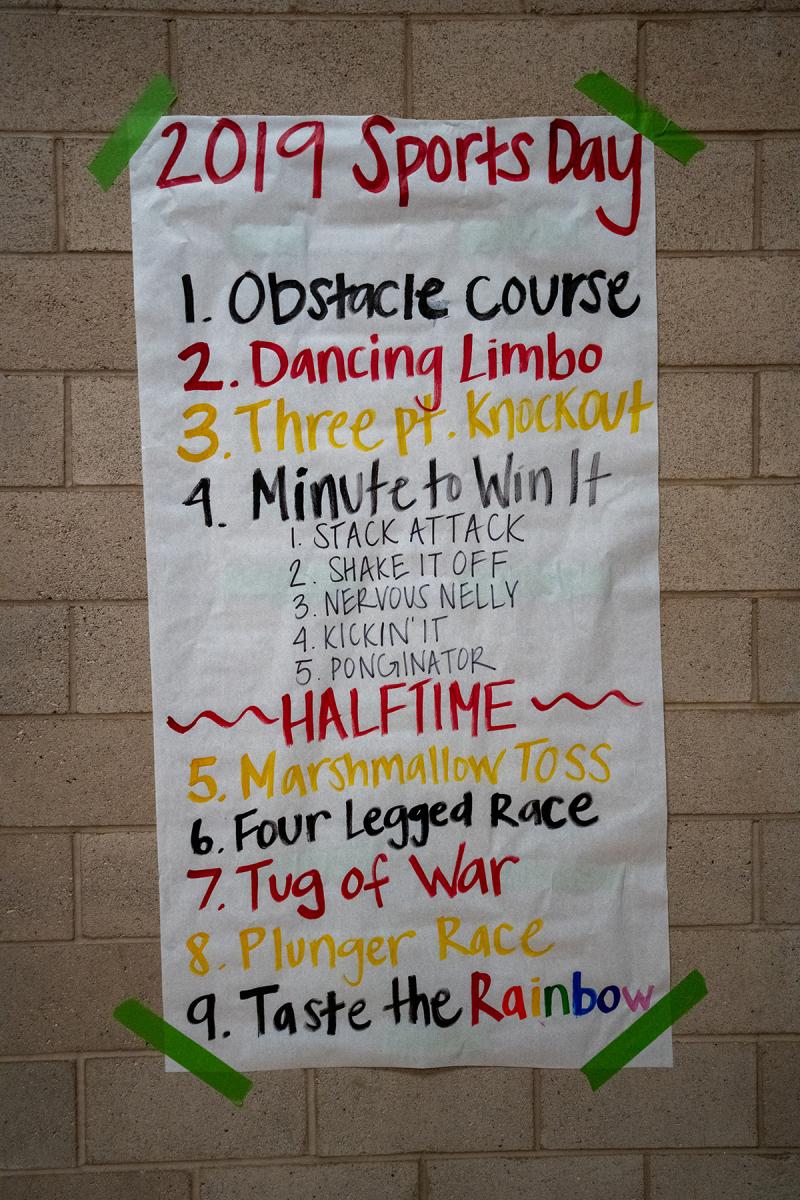 2019 Sports Day
1. Obstacle Course
2. Dancing Limbo
3. Three pt. Knockout
4. Minute to Win It
1. STACK ATTACK
2. SHAKE IT OFF
3. NERVOUS NELLY
4. KICKIN' IT
5. PONGINATOR
HALFTIME
5. Marshmallow Toss
6. Four Legged Race
7. Tug of War
8. Plunger Race
9. Taste the Rainbow